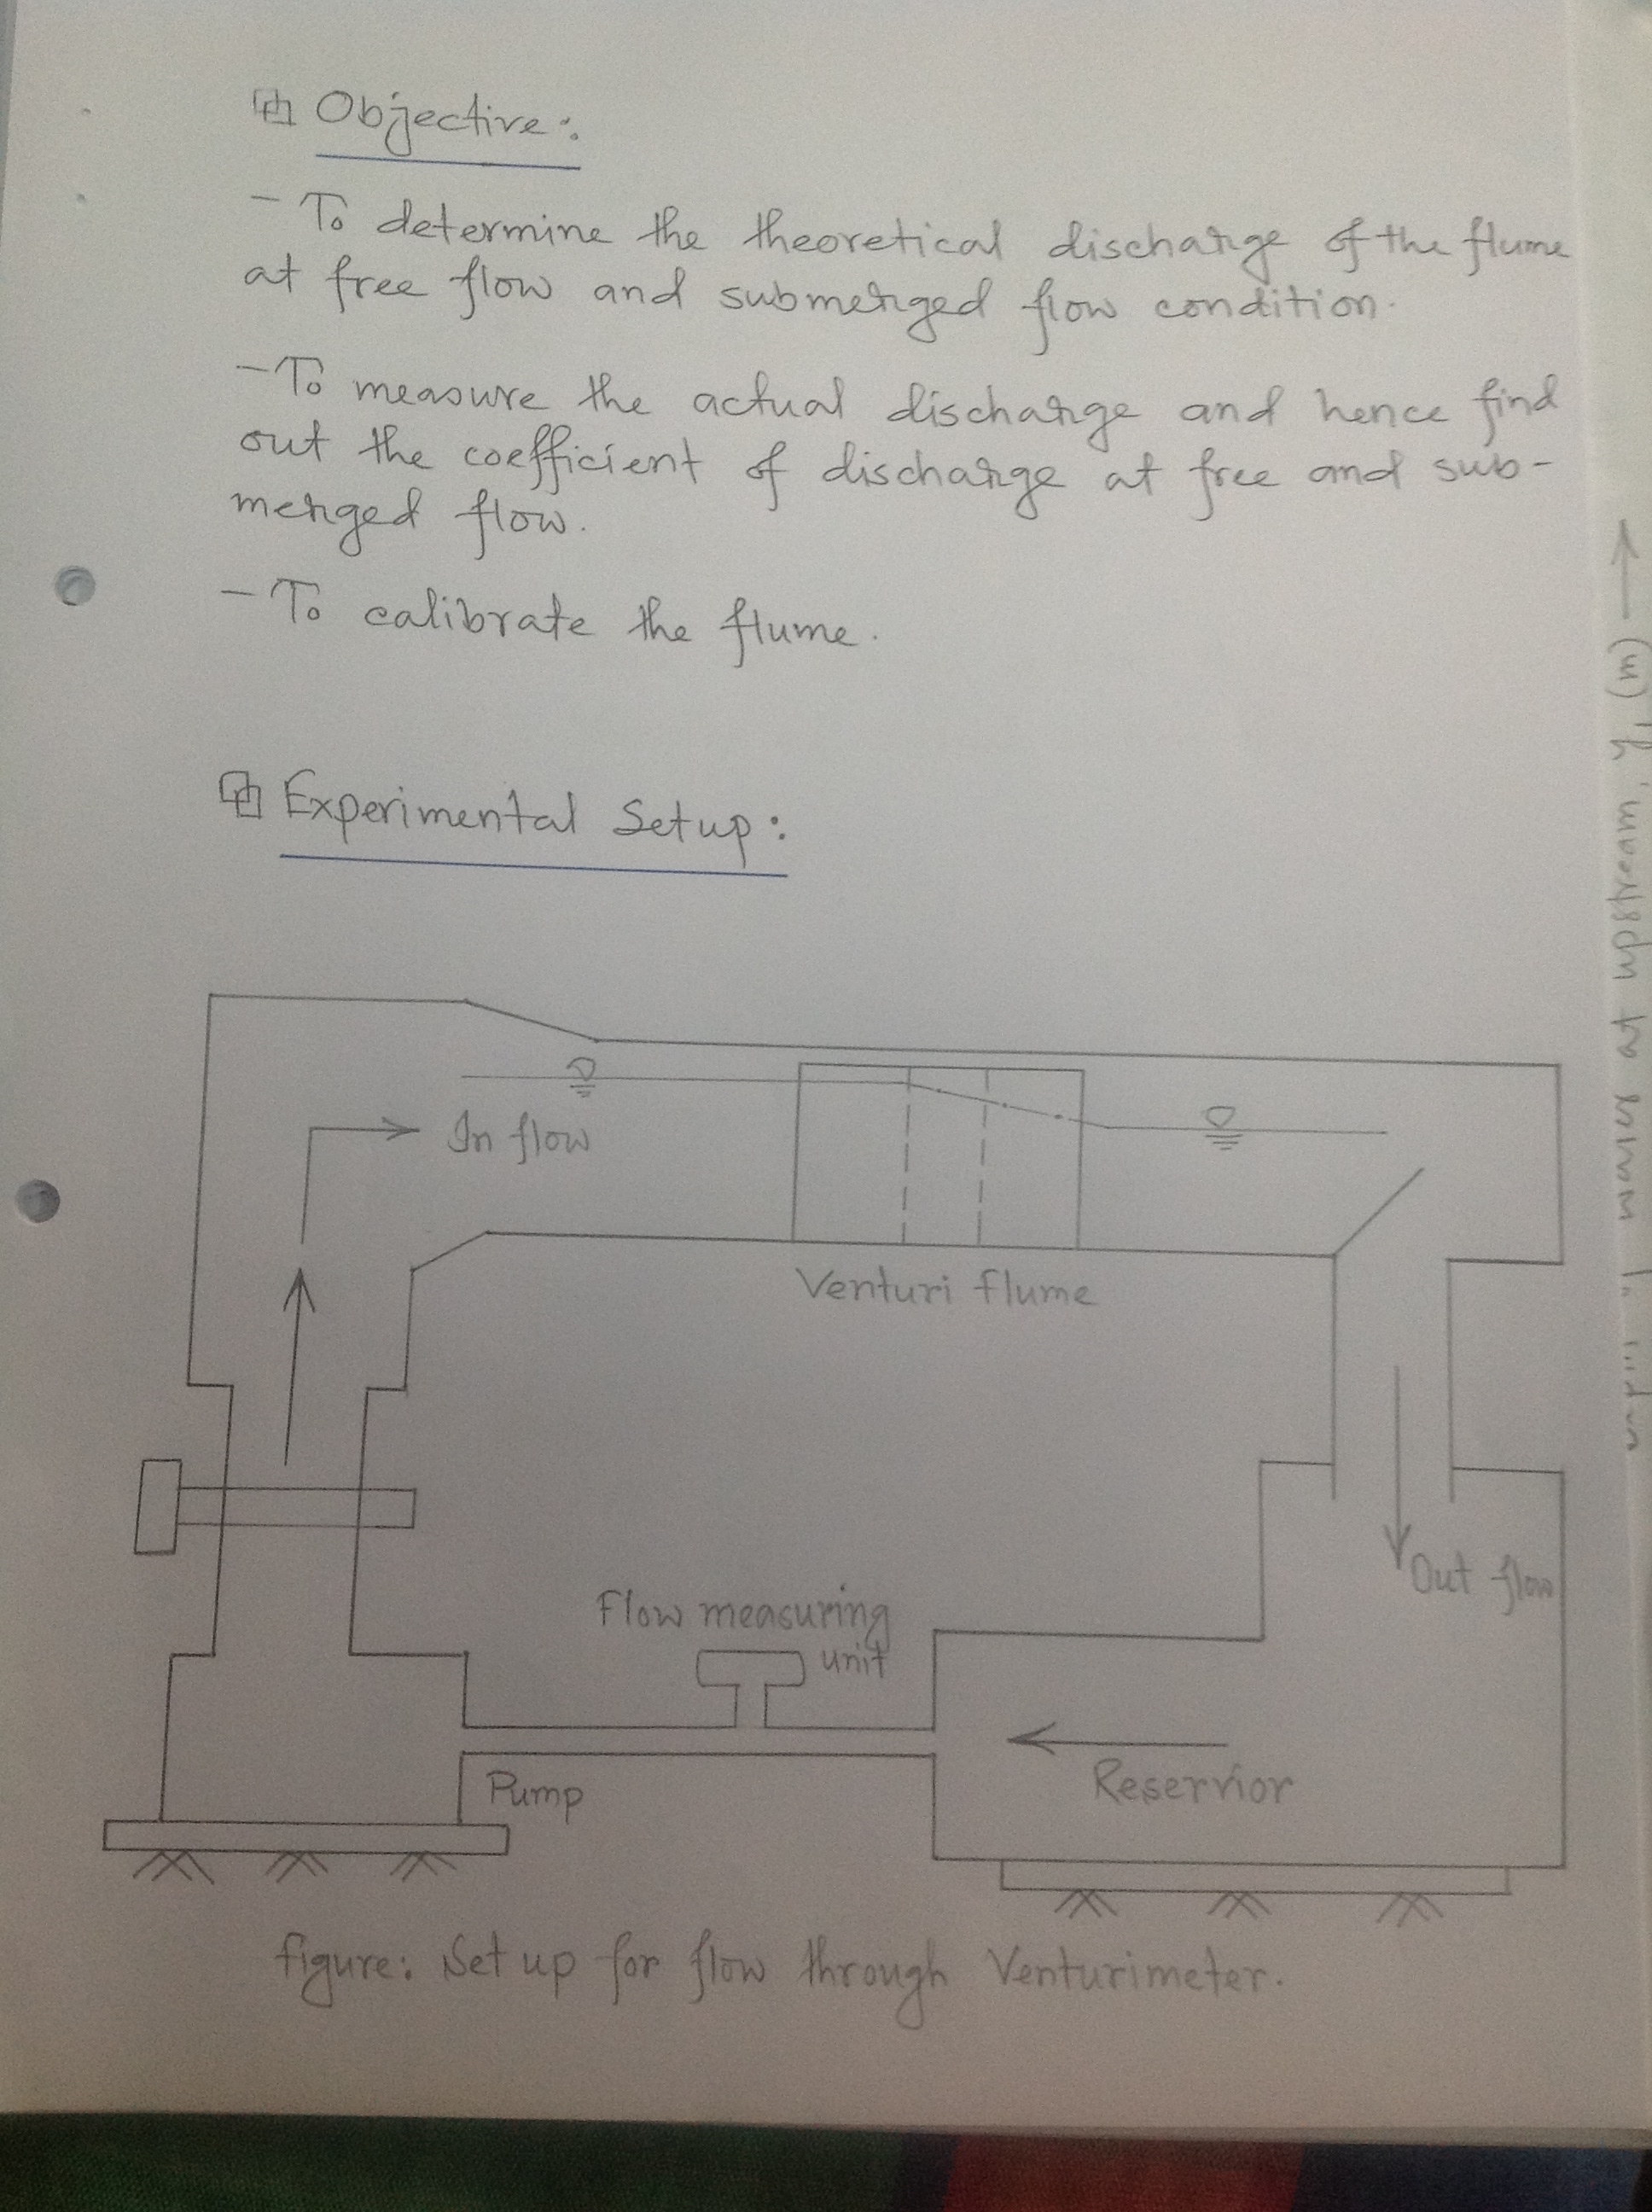 Objective:
- To determine the theoretical discharge of the flume
at free flow and submerged flow condition.
- To measure the actual discharge and hence find
out the coefficient of discharge at free and sub-
merged flow.
- To calibrate the flume.
Experimental Setup:
In flow
Venturi flume
Out flow
Flow measuring
unit
Reservior
Pump
figure: Set up for flow through Venturimeter.
at upstream, y1 (m)